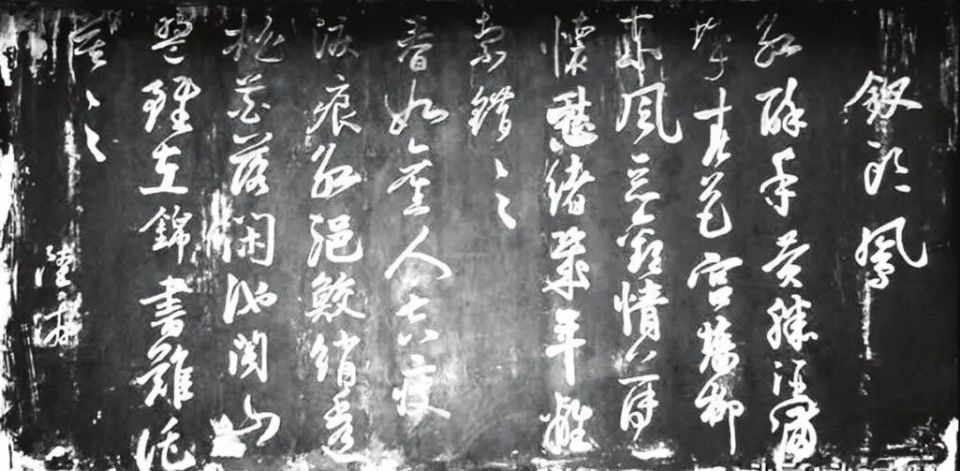 釵頭鳳
紅酥手黄縢酒滿
城春色宫墻柳
東風惡歡情薄一
懷愁緒幾年離
索錯〻〻
春如舊人空瘦
淚痕紅浥鮫綃透
桃花落閑池閣山
盟雖在錦書難託
莫〻〻
陸游